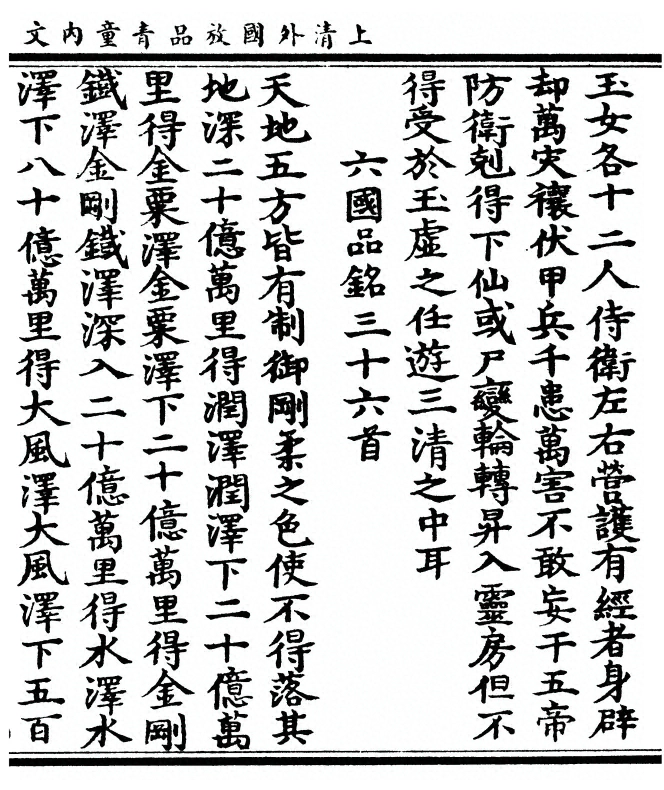 上清外國放品青童內文
玉女各十二人侍衛左右營護有經者身辟
却萬灾禳伏甲兵千患萬害不敢妄干五帝
防衛剋得下仙或尸變輪轉昇入靈房但不
得受於玉虛之任遊三清之中耳
六國品銘三十六首
天地五方皆有制御剛柔之色使不得落其
地深二十億萬里得潤澤潤澤下二十億萬
里得金粟澤金粟澤下二十億萬里得金剛
鐵澤金剛鐵澤深入二十億萬里得水澤水
澤下八十億萬里得大風澤大風澤下五百